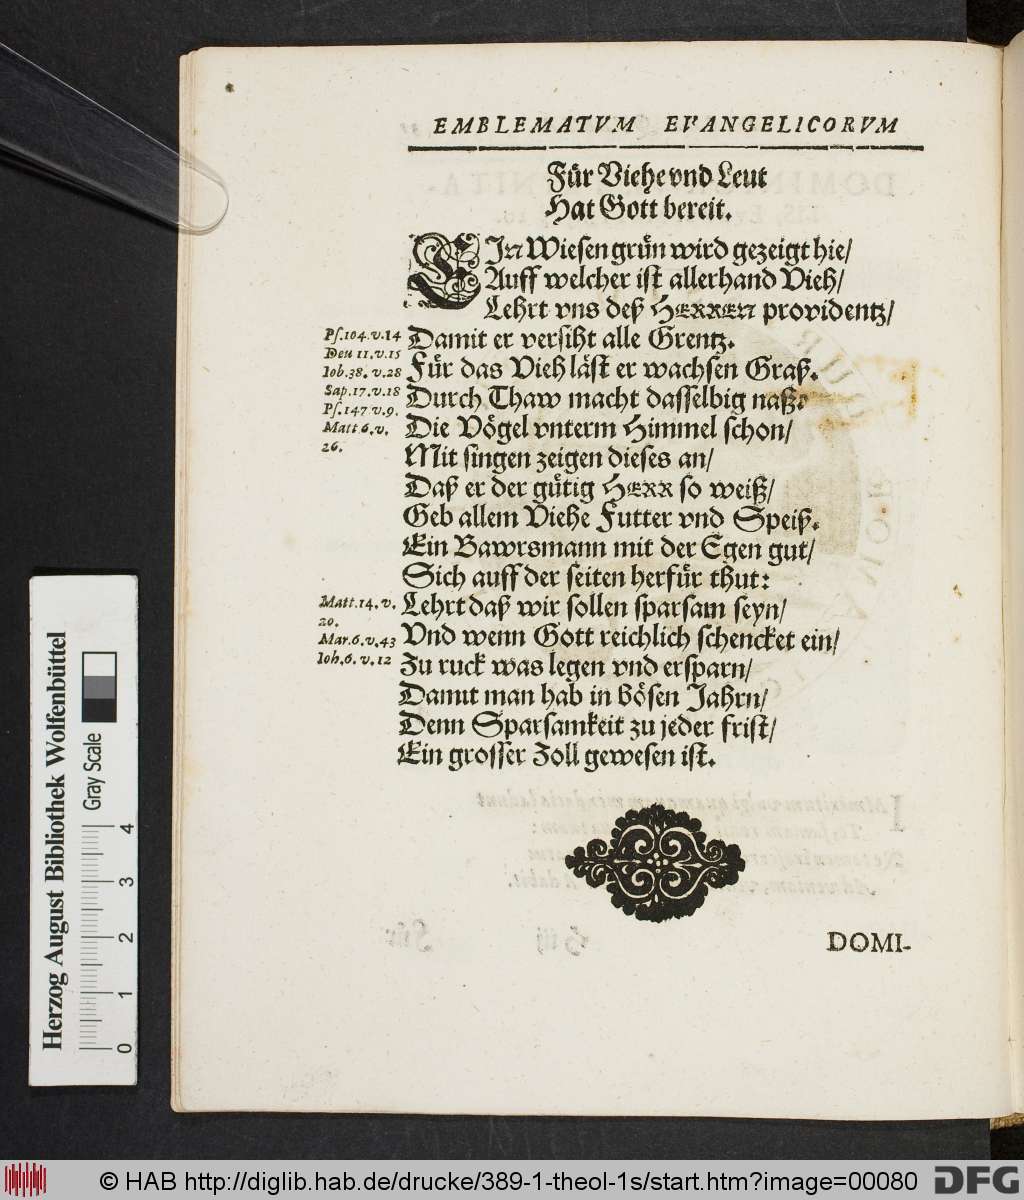 EMBLEMATVM EVANGELICORVM
Für Viehe vnd Leut
Hat Gott bereit.
EIn Wiesen grün wird gezeigt hie/
Auff welcher ist allerhand Vieh/
Lehrt vns deß HERREN providentz/
Ps.104.v.14 Damit er versiht alle Grentz.
Deu 11.v.15
Iob.38.v.28 Für das Vieh läst er wachsen Graß.
Sap.17.v.18 Durch Thaw macht dasselbig naß.
Ps.147.v.9.
Matt 6.v. Die Vögel vnterm Himmel schon/
26. Mit singen zeigen dieses an/
Daß er der gütig HERR so weiß/
Geb allem Viehe Futter vnd Speiß.
Ein Bawrsmann mit der Egen gut/
Sich auff der seiten herfür thut:
Matt.14.v. Lehrt daß wir sollen sparsam seyn/
20.
Mar.6.v.43 Vnd wenn Gott reichlich schencket ein/
Ioh.6.v.12 Zu ruck was legen vnd ersparn/
Damit man hab in bösen Jahrn/
Denn Sparsamkeit zu jeder frist/
Ein grosser Zoll gewesen ist.
DOMI-
Herzog August Bibliothek Wolfenbüttel
Gray Scale
0 1 2 3 4
© HAB http://diglib.hab.de/drucke/389-1-theol-1s/start.htm?image=00080
DFG